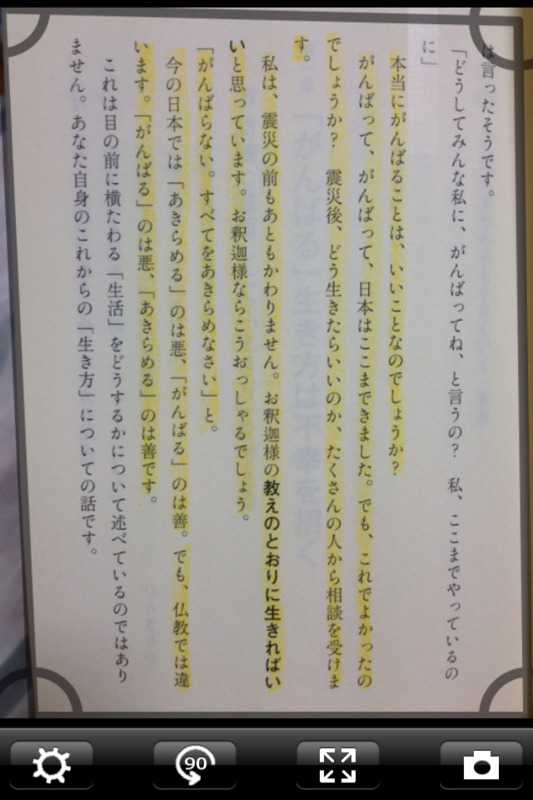 は言ったそうです。
「どうしてみんな私に、がんばってね、と言うの？　私、ここまでやっているの
に」
本当にがんばることは、いいことなのでしょうか？
がんばって、がんばって、日本はここまできました。でも、これでよかったの
でしょうか？　震災後、どう生きたらいいのか、たくさんの人から相談を受けま
す。
私は、震災の前もあともかわりません。お釈迦様の教えのとおりに生きればい
いと思っています。お釈迦様ならこうおっしゃるでしょう。
「がんばらない。すべてをあきらめなさい」と。
今の日本では「あきらめる」のは悪、「がんばる」のは善。でも、仏教では違
います。「がんばる」のは悪、「あきらめる」のは善です。
これは目の前に横たわる「生活」をどうするかについて述べているのではあり
ません。あなた自身のこれからの「生き方」についての話です。
90